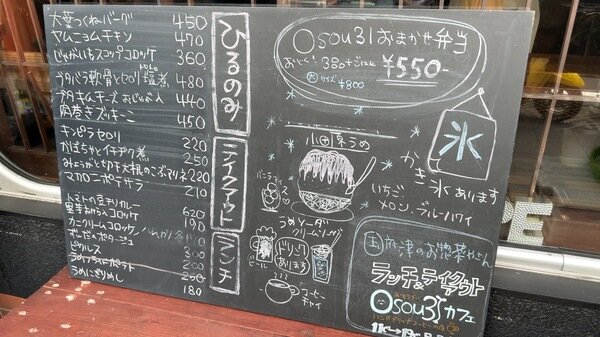 大葉つくねバーグ 450
ヤムニョムチキン 470
じゃがいもスコップコロッケ 360
ブタバラ軟骨とセロリ塩煮 480
ブタキムチーズ 440
肉巻きズッキーニ 450
キンピラセロリ 220
かぼちゃとイチヂク煮 250
みょうがとセロリ 220
マカロニポテサラ 210
トマトの豆チリカレー 620
里芋 コロッケ 190
カニクリームコロッケ
ずんだ ポタージュ 300
ピクルス 200
180
ひるのみ
テイクアウト
ランチ
Osou31おまかせ弁当
¥550-
大サイズ ¥800
氷
小田原うめ
かき氷あります
いちご
メロン、ブルーハワイ
バニラアイス
うめソーダ
クリームソーダ
ドリンク
あります
ビール
コーヒー
チャイ
国府津のお惣菜やさん
ランチ&テイクアウト
Osou31カフェ